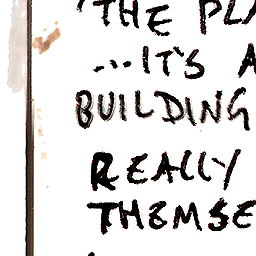 "THE PLA
...IT'S A
BUILDING
REALLY
THEMSE